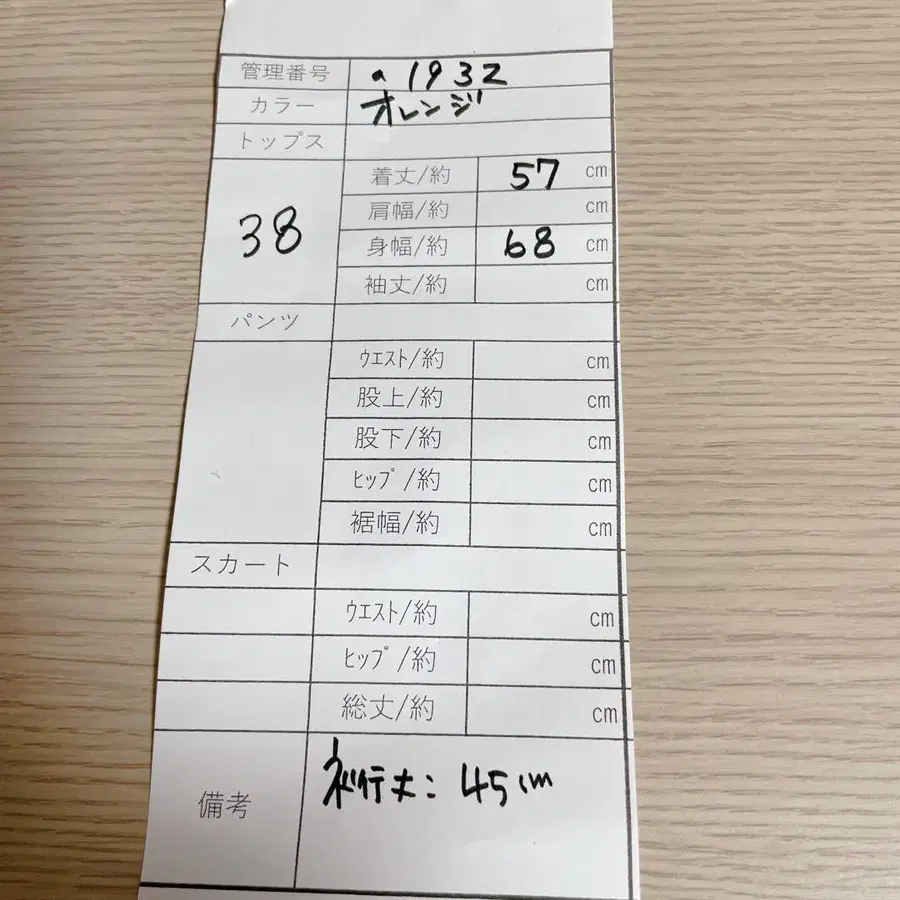 管理番号 a1932
カラー オレンジ
トップス
38
着丈/約 57 cm
肩幅/約 cm
身幅/約 68 cm
袖丈/約 cm
パンツ
ｳｴｽﾄ/約 cm
股上/約 cm
股下/約 cm
ﾋｯﾌﾟ/約 cm
裾幅/約 cm
スカート
ｳｴｽﾄ/約 cm
ﾋｯﾌﾟ/約 cm
総丈/約 cm
備考 裄丈: 45cm